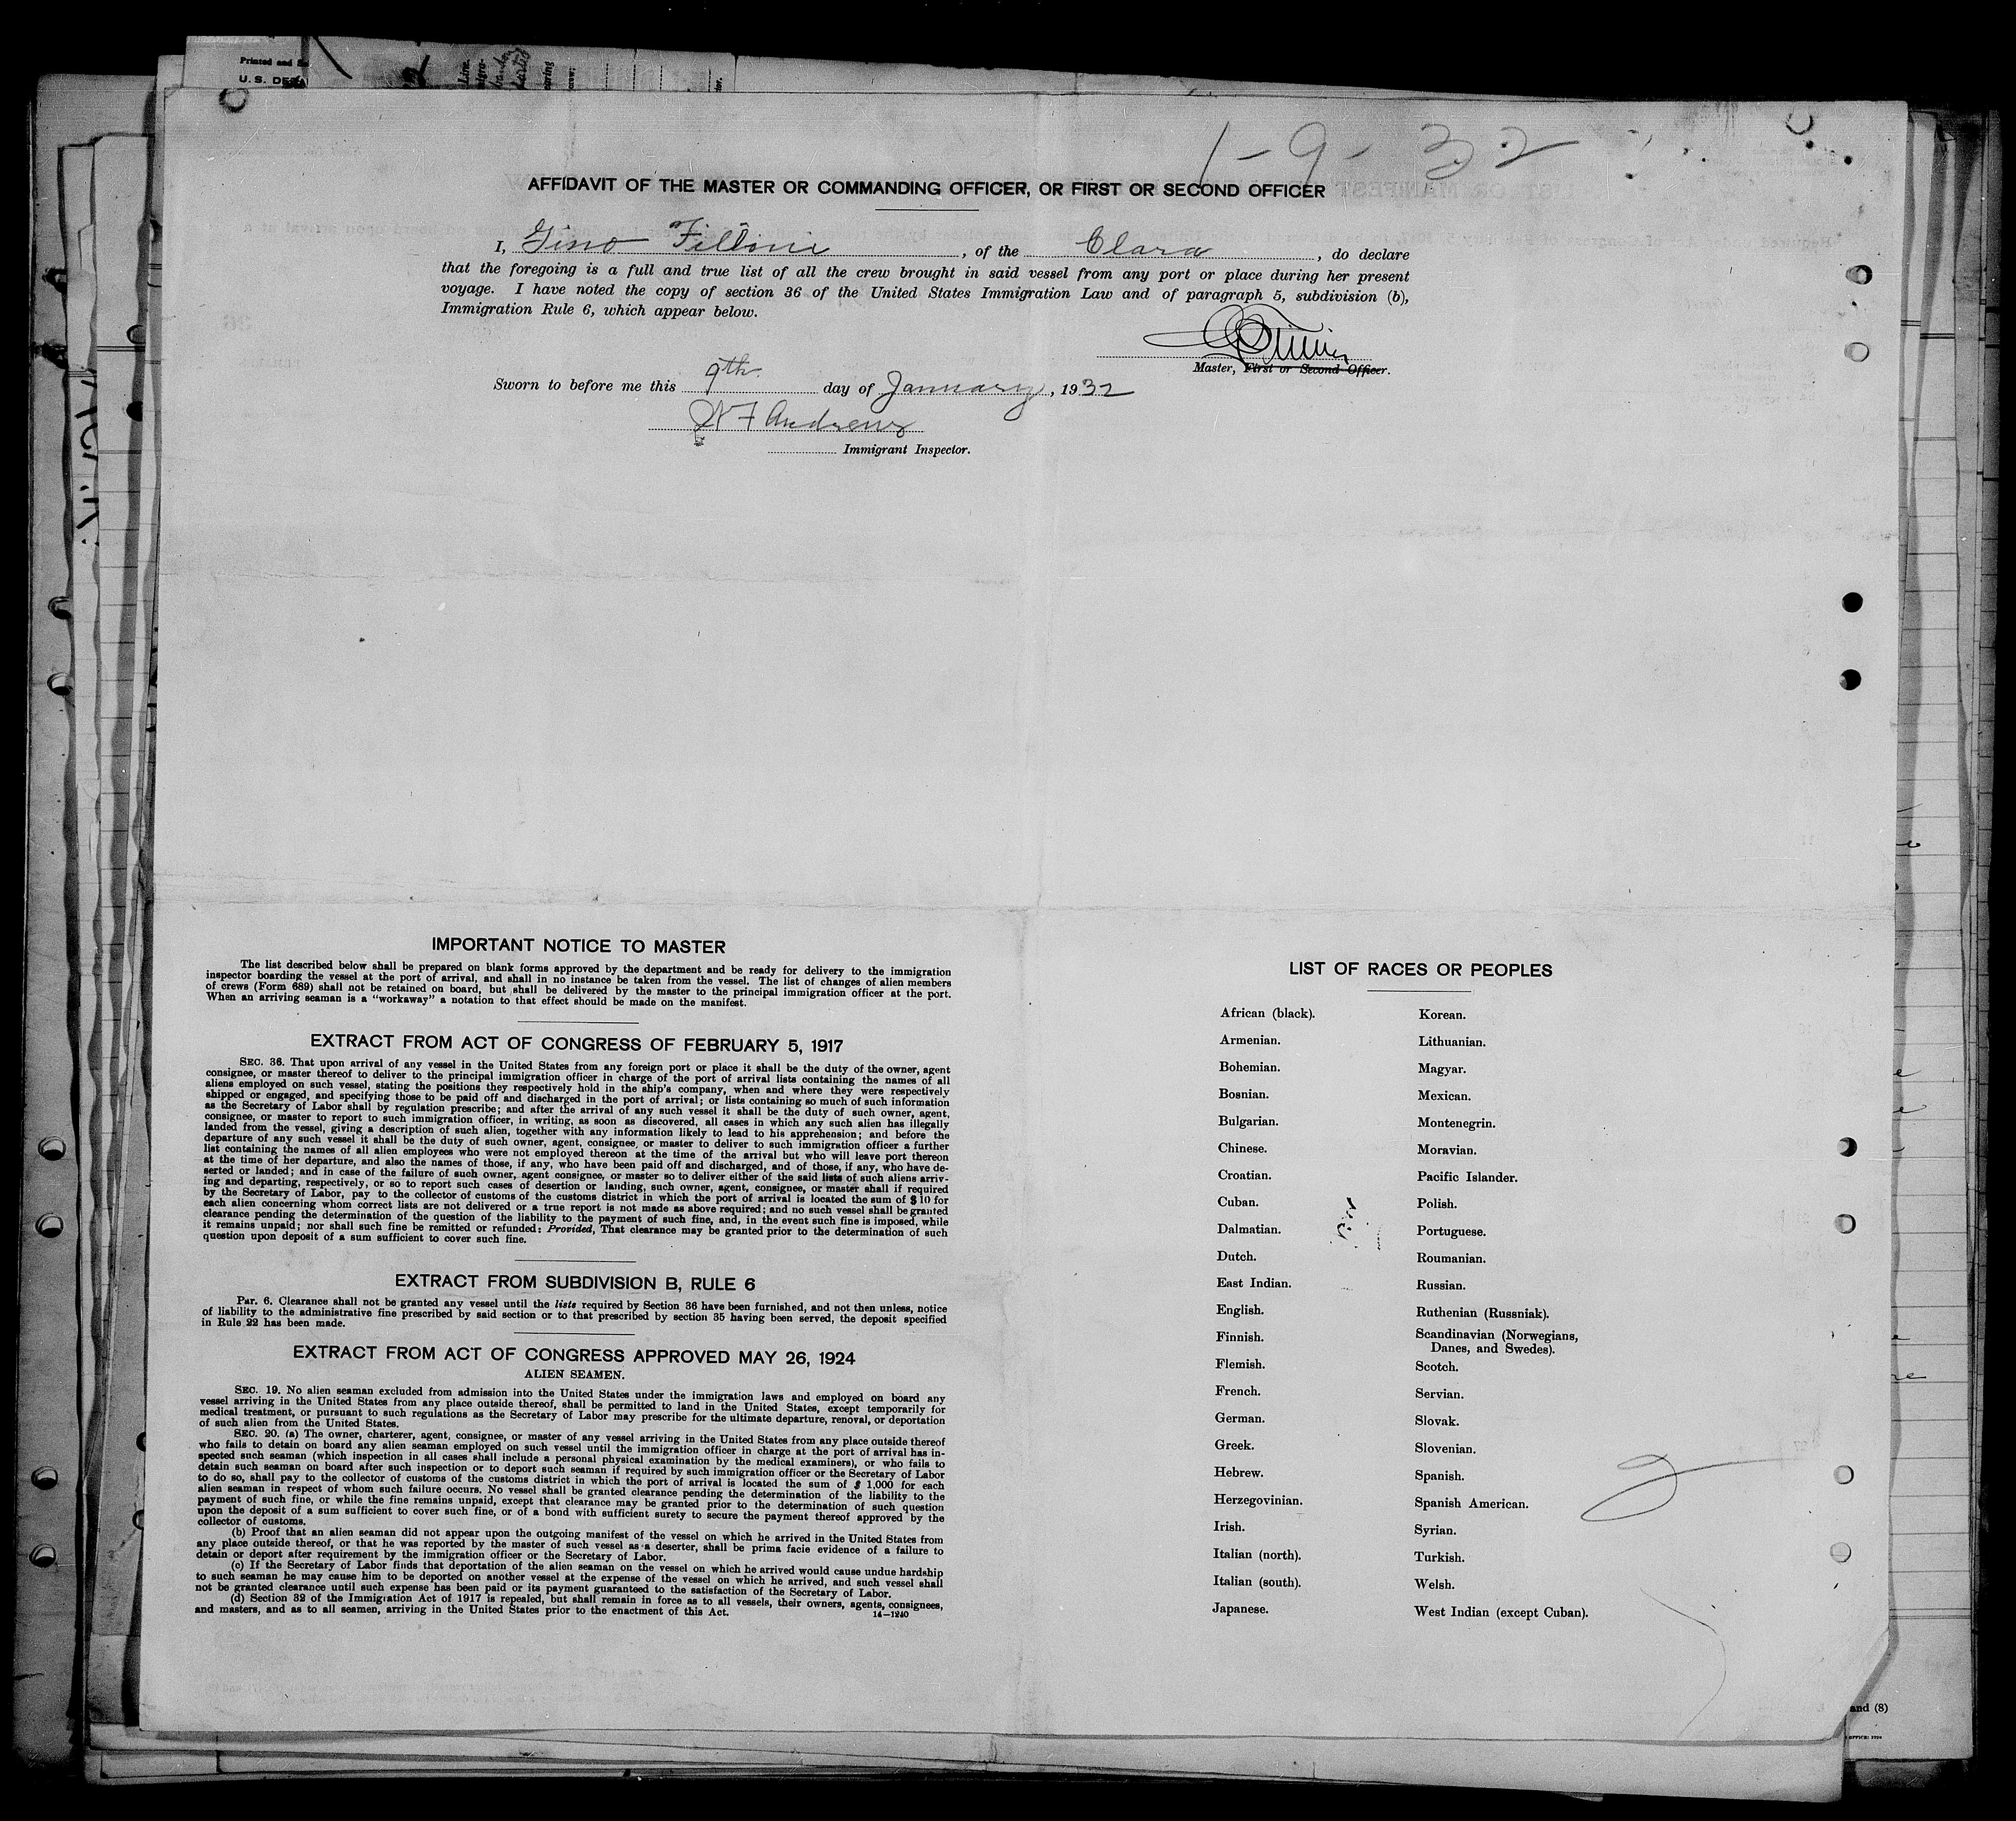 Printed and
U. S. DE
1-9-32
AFFIDAVIT OF THE MASTER OR COMMANDING OFFICER, OR FIRST OR SECOND OFFICER
I, Gino , of the Clara , do declare
that the foregoing is a full and true list of all the crew brought in said vessel from any port or place during her present
voyage. I have noted the copy of section 36 of the United States Immigration Law and of paragraph 5, subdivision (b),
Immigration Rule 6, which appear below.
Master, First or Second Officer.
Sworn to before me this 9th day of January, 1932
Andrews
Immigrant Inspector.
IMPORTANT NOTICE TO MASTER
The list described below shall be prepared on blank forms approved by the department and be ready for delivery to the immigration
inspector boarding the vessel at the port of arrival, and shall in no instance be taken from the vessel. The list of changes of alien members
of crews (Form 689) shall not be retained on board, but shall be delivered by the master to the principal immigration officer at the port.
When an arriving seaman is a "workaway" a notation to that effect should be made on the manifest.
EXTRACT FROM ACT OF CONGRESS OF FEBRUARY 5, 1917
SEC. 36. That upon arrival of any vessel in the United States from any foreign port or place it shall be the duty of the owner, agent
consignee, or master thereof to deliver to the principal immigration officer in charge of the port of arrival lists containing the names of all
aliens employed on such vessel, stating the positions they respectively hold in the ship's company, when and where they were respectively
shipped or engaged, and specifying those to be paid off and discharged in the port of arrival; or lists containing so much of such information
as the Secretary of Labor shall by regulation prescribe; and after the arrival of any such vessel it shall be the duty of such owner, agent,
consignee, or master to report to such immigration officer, in writing, as soon as discovered, all cases in which any such alien has illegally
landed from the vessel, giving a description of such alien, together with any information likely to lead to his apprehension; and before the
departure of any such vessel it shall be the duty of such owner, agent, consignee, or master to deliver to such immigration officer a further
list containing the names of all alien employees who were not employed thereon at the time of the arrival but who will leave port thereon
at the time of her departure, and also the names of those, if any, who have been paid off and discharged, and of those, if any, who have de-
serted or landed; and in case of the failure of such owner, agent consignee, or master so to deliver either of the said lists of such aliens arriv-
ing and departing, respectively, or so to report such cases of desertion or landing, such owner, agent, consignee, or master shall if required
by the Secretary of Labor, pay to the collector of customs of the customs district in which the port of arrival is located the sum of $10 for
each alien concerning whom correct lists are not delivered or a true report is not made as above required; and no such vessel shall be granted
clearance pending the determination of the question of the liability to the payment of such fine, and, in the event such fine is imposed, while
it remains unpaid; nor shall such fine be remitted or refunded: Provided, That clearance may be granted prior to the determination of such
question upon deposit of a sum sufficient to cover such fine.
EXTRACT FROM SUBDIVISION B, RULE 6
PAR. 6. Clearance shall not be granted any vessel until the lists required by Section 36 have been furnished, and not then unless, notice
of liability to the administrative fine prescribed by said section or to that prescribed by section 35 having been served, the deposit specified
in Rule 22 has been made.
EXTRACT FROM ACT OF CONGRESS APPROVED MAY 26, 1924
ALIEN SEAMEN.
SEC. 19. No alien seaman excluded from admission into the United States under the immigration laws and employed on board any
vessel arriving in the United States from any place outside thereof, shall be permitted to land in the United States, except temporarily for
medical treatment, or pursuant to such regulations as the Secretary of Labor may prescribe for the ultimate departure, removal, or deportation
of such alien from the United States.
SEC. 20. (a) The owner, charterer, agent, consignee, or master of any vessel arriving in the United States from any place outside thereof
who fails to detain on board any alien seaman employed on such vessel until the immigration officer in charge at the port of arrival has in-
spected such seaman (which inspection in all cases shall include a personal physical examination by the medical examiners), or who fails to
detain such seaman on board after such inspection or to deport such seaman if required by such immigration officer or the Secretary of Labor
to do so, shall pay to the collector of customs of the customs district in which the port of arrival is located the sum of $ 1,000 for each
alien seaman in respect of whom such failure occurs. No vessel shall be granted clearance pending the determination of the liability to the
payment of such fine, or while the fine remains unpaid, except that clearance may be granted prior to the determination of such question
upon the deposit of a sum sufficient to cover such fine, or of a bond with sufficient surety to secure the payment thereof approved by the
collector of customs.
(b) Proof that an alien seaman did not appear upon the outgoing manifest of the vessel on which he arrived in the United States from
any place outside thereof, or that he was reported by the master of such vessel as a deserter, shall be prima facie evidence of a failure to
detain or deport after requirement by the immigration officer or the Secretary of Labor.
(c) If the Secretary of Labor finds that deportation of the alien seaman on the vessel on which he arrived would cause undue hardship
to such seaman he may cause him to be deported on another vessel at the expense of the vessel on which he arrived, and such vessel shall
not be granted clearance until such expense has been paid or its payment guaranteed to the satisfaction of the Secretary of Labor.
(d) Section 32 of the Immigration Act of 1917 is repealed, but shall remain in force as to all vessels, their owners, agents, consignees,
and masters, and as to all seamen, arriving in the United States prior to the enactment of this Act.
14—1240
LIST OF RACES OR PEOPLES
African (black).
Armenian.
Bohemian.
Bosnian.
Bulgarian.
Chinese.
Croatian.
Cuban.
Dalmatian.
Dutch.
East Indian.
English.
Finnish.
Flemish.
French.
German.
Greek.
Hebrew.
Herzegovinian.
Irish.
Italian (north).
Italian (south).
Japanese.
Korean.
Lithuanian.
Magyar.
Mexican.
Montenegrin.
Moravian.
Pacific Islander.
Polish.
Portuguese.
Roumanian.
Russian.
Ruthenian (Russniak).
Scandinavian (Norwegians,
Danes, and Swedes).
Scotch.
Servian.
Slovak.
Slovenian.
Spanish.
Spanish American.
Syrian.
Turkish.
Welsh.
West Indian (except Cuban).
2
and (8)